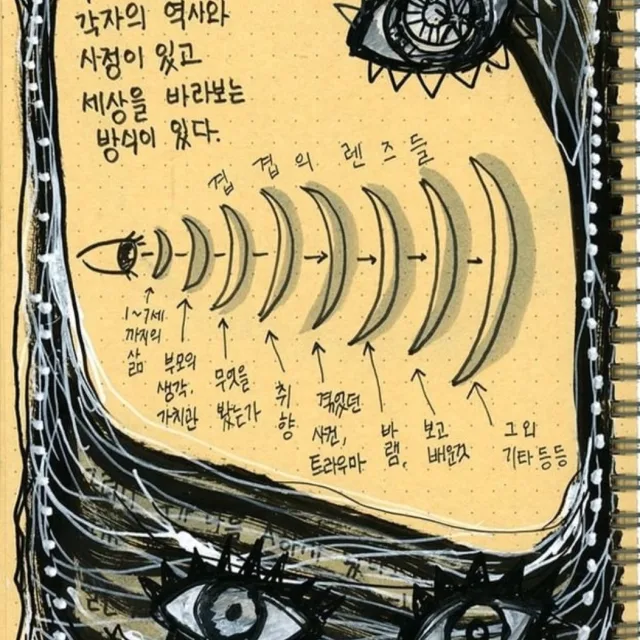 각자의 역사와
사정이 있고
세상을 바라보는
방식이 있다.
겹겹의 렌즈들
1~7세
까지의
삶
부모의
생각,
가치관
무엇을
봤는가
취
향
겪었던
사건,
트라우마
바
램,
보고
배운것
그 외
기타등등